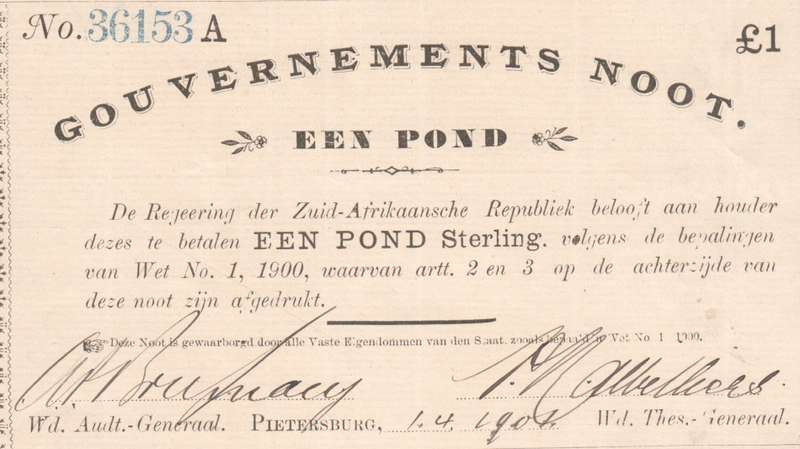 No. 36153 A £1
GOUVERNEMENTS NOOT.
EEN POND
De Regeering der Zuid-Afrikaansche Republiek belooft aan houder
dezes te betalen EEN POND Sterling. volgens de bepalingen
van Wet No. 1, 1900, waarvan artt. 2 en 3 op de achterzijde van
deze noot zijn afgedrukt.
Deze Noot is gewaarborgd door alle Vaste Eigendommen van den Staat, zooals bepaald in Wet No. 1 1900.
Wd. Audt.-Generaal. PIETERSBURG, 1.4.1901. Wd. Thes.-Generaal.